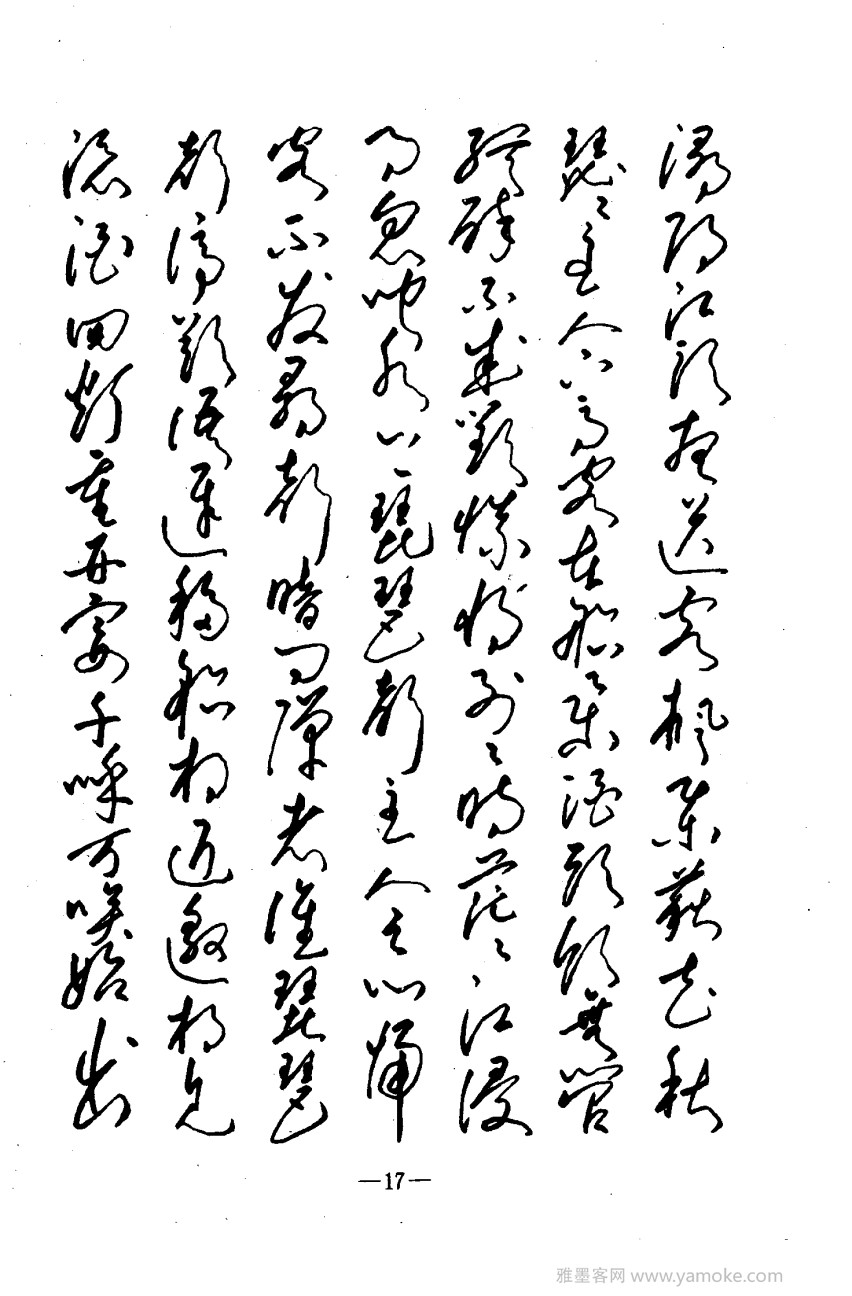 潯陽江頭夜送客楓葉荻花秋
瑟〻主人下馬客在船舉酒欲飲無管
絃醉不成歡慘將別〻時茫〻江浸
月忽聞水上琵琶聲主人忘歸
客不發尋聲暗問彈者誰琵琶
聲停欲語遲移船相近邀相見
添酒回灯重開宴千呼万喚始出
—17—
雅墨客网 www.yamoke.com